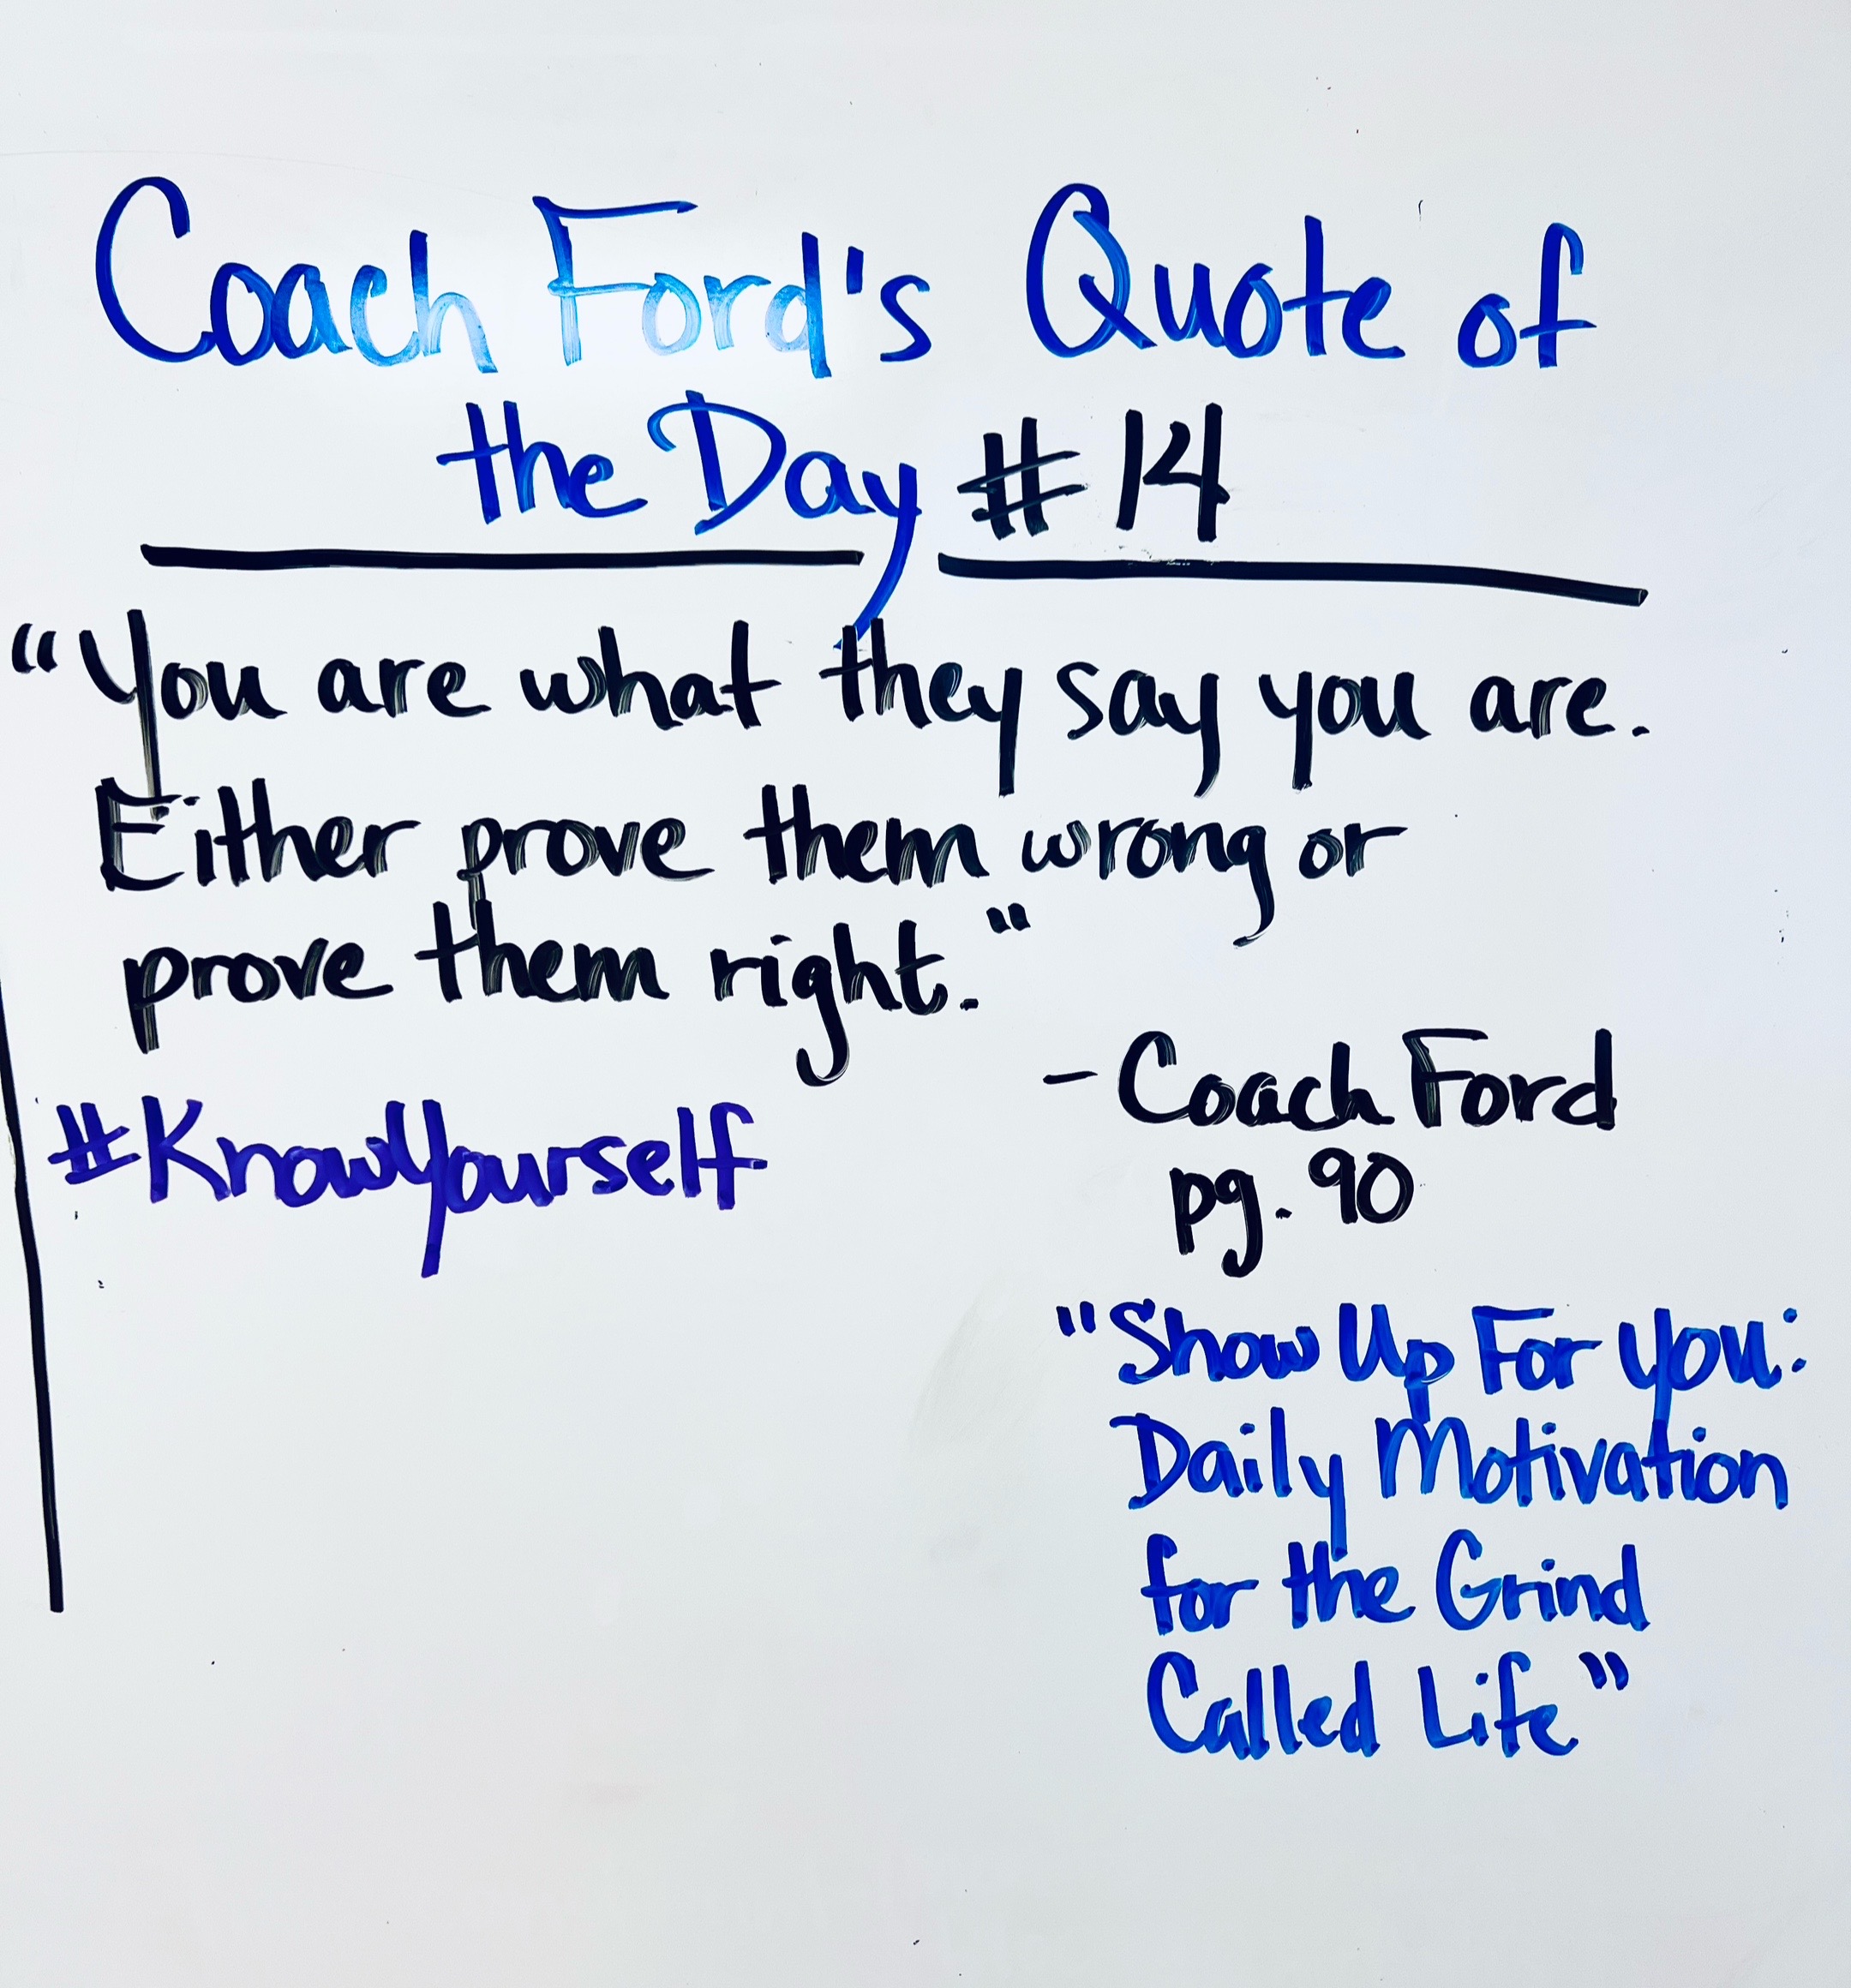 Coach Ford's Quote of
the Day #14
"You are what they say you are.
Either prove them wrong or
prove them right."
- Coach Ford
pg. 90
#KnowYourself
"Show Up For You:
Daily Motivation
for the Grind
Called Life"